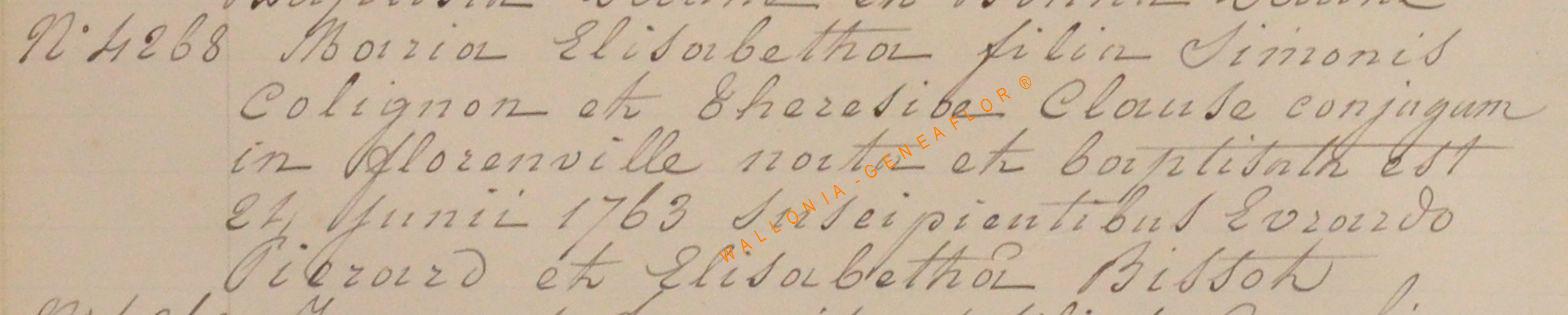 N° 4268 Maria Elisabetha filia Simonis
Colignon et Theresiae Clause conjugum
in florenville nata et baptisata est
24 Junii 1763 Suscipientibus Evrardo
Pierard et Elisabetha Bissot
WALLONIA-GENEAFLOR®